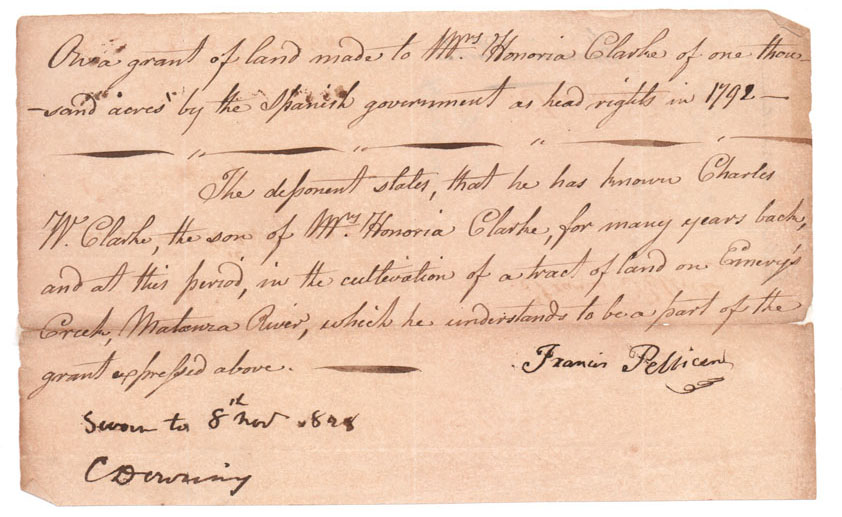 On a grant of land made to Mrs. Honoria Clarke of one thou-
-sand acres by the Spanish government as head rights in 1792 —
" " " " "
The deponent states, that he has known Charles
W. Clarke, the son of Mrs. Honoria Clarke, for many years back,
and at this period, in the cultivation of a tract of land on Emery's
Creek, Matanza River, which he understands to be a part of the
grant expressed above. —
Francis Pellicer
Sworn to 8th Nov 1828
C Downing